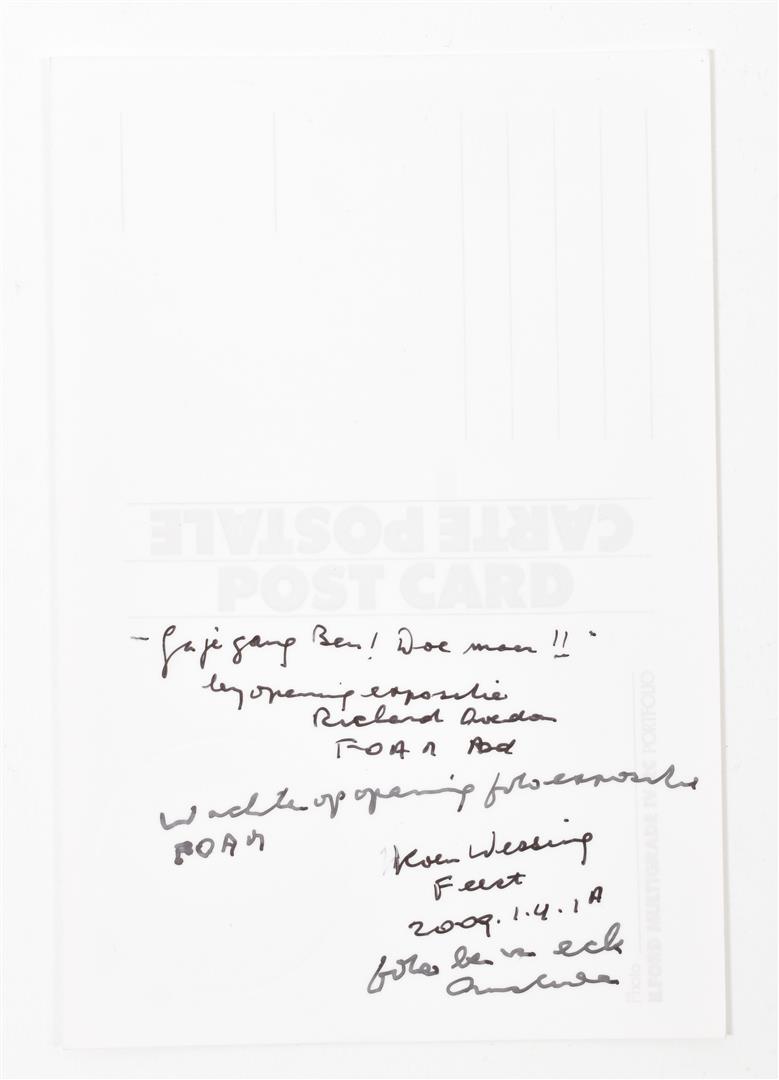 CARTE POSTALE
POST CARD
- Ga je gang Ben! Doe maar !!
by opening expositie
Richard Avedon
FOAM Asd
Wachten op opening fotoexpositie
FOAM
Koen Wessing
Feest
2009.1.4.1A
foto ben van eck
Amsterdam
Photo
ILFORD MULTIGRADE IV RC PORTFOLIO